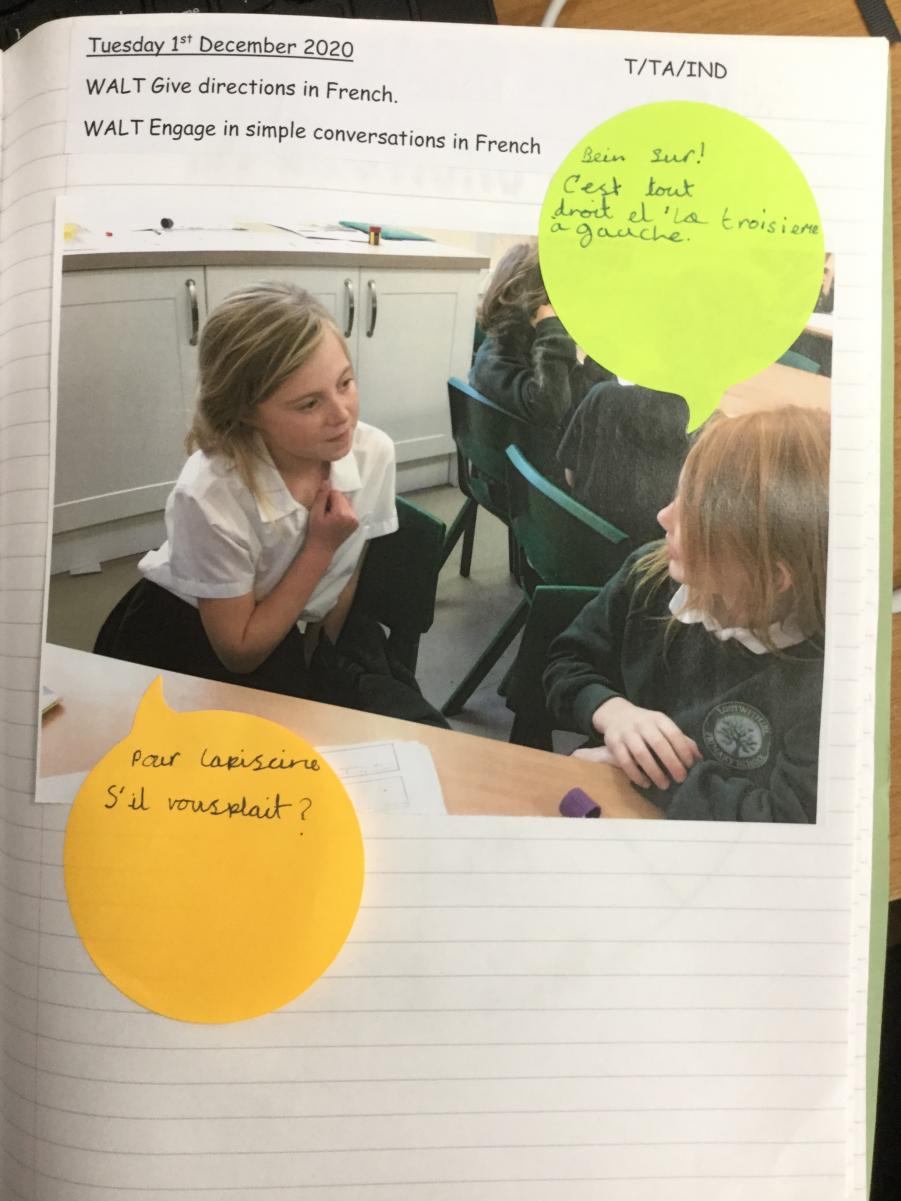 Tuesday 1st December 2020
T/TA/IND
WALT Give directions in French.
WALT Engage in simple conversations in French
Bein sur!
C'est tout
droit et 'La troisieme
à gauche.
Pour Lapiscine
S'il vousplait?
PRIMARY SCHOOL